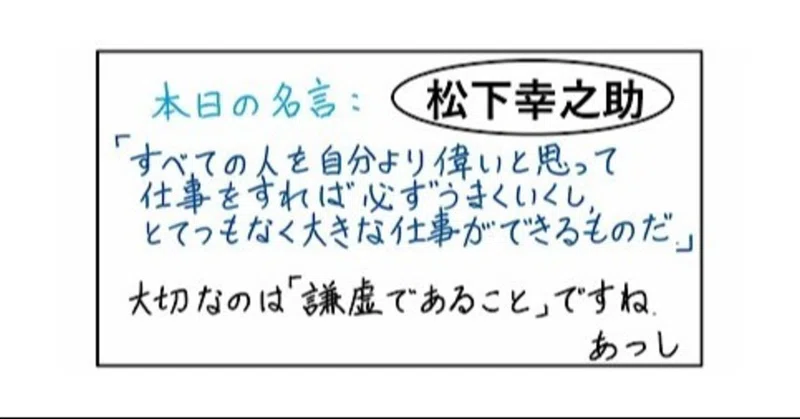 本日の名言: 松下幸之助
「すべての人を自分より偉いと思って
仕事をすれば必ずうまくいくし、
とてつもなく大きな仕事ができるものだ。」
大切なのは「謙虚であること」ですね.
あつし